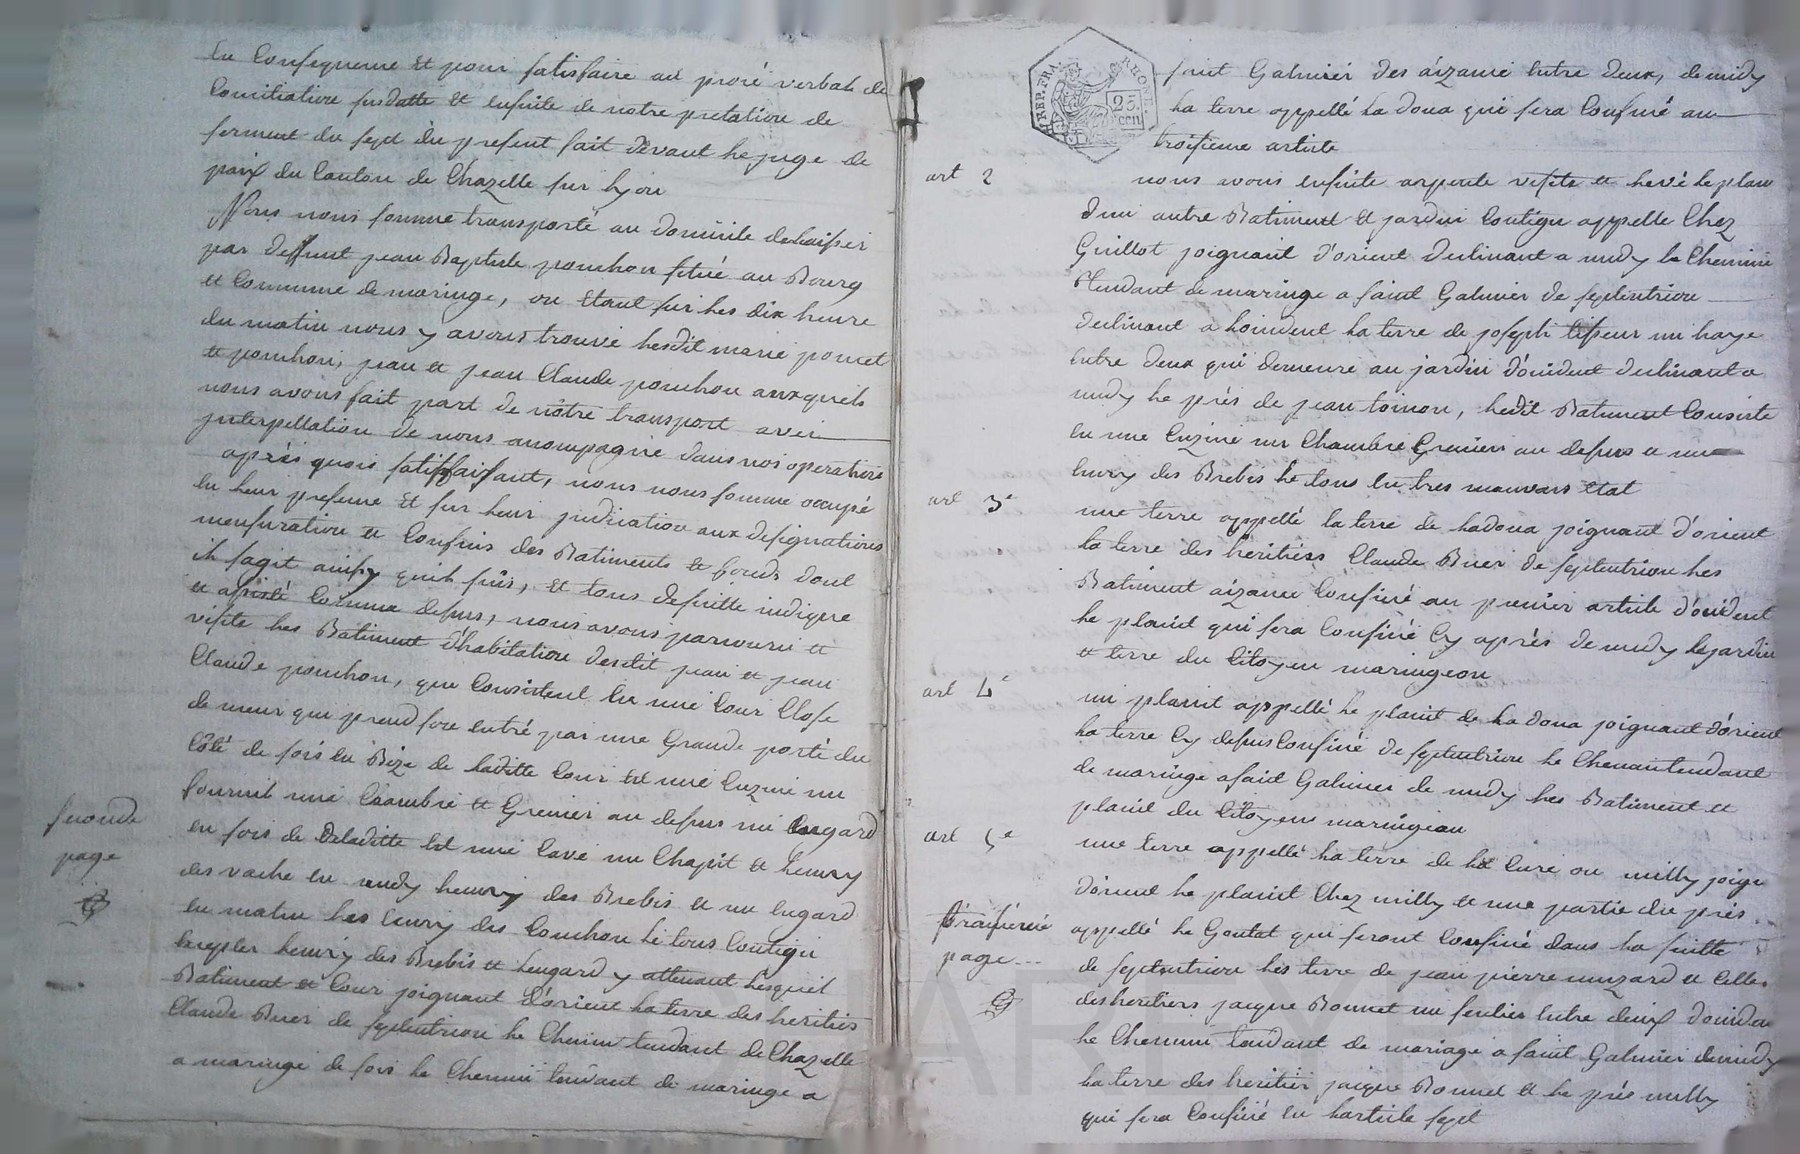 en Consequence et pour satisfaire au procé verbal de
Conciliation susdatte et ensuite de notre pretation de
serment du sept du present fait devant le juge de
paix du Canton de Chazelle sur lyon
Nous nous somme transporté au domicile delaissei
par deffunt jean Baptiste ponchon situé au Bourg
et Commune de maringe, ou etant sur les dix heure
du matin nous y avons trouvé lesdit marie poncet
et ponchon, jean et jean Claude ponchon auxquels
nous avons fait part de nôtre transport avec
jnterpellation de nous acompagné dans nos operations
après quoi satisfaisant, nous nous somme occupé
en leur presence et sur leur jndication aux designations
mensuration et Confins des Batiments et fonds dont
il sagit ainsy quil suis, et tous desuitte indique
et assisté Comme desus, nous avons parcouru et
visite les Batiment d'habitation desdit jean et jean
Claude ponchon, que Consistent en une Cour Close
de meur qui prend son entré par une Grande porté du
Côté de soir en Bize de laditte Cour est une Cuzine un
fournil une Chambre et Grenier au desus un engard
en soir de deladitte est une Cave un Chapit et heurry
des vache en midy heurry des Brebis et un engard
en matin les Curry des Couchon le tous Contigu
heurry des Brebis et hengard y attenant lesquel
Batiment et Cour joignant d'orient la terre des heritiers
Claude Buer de septentrion le Chemin tendant de Chazelle
a maringe de soir le Chemin tendant de maringe a
seconde
page
saint Galmier des aizance entre deux, de midy
la terre appellé la doua qui sera Confiné au
troisieme article
art 2
nous avons ensuite arpente visite et levé le plan
d'un autre Batiment et jardin Contigu appelle Chez
Guillot joignant d'orient declinant a midy le Chemin
tendant de maringe a saint Galmier de septentrion
declinant a loccident la terre de joseph tisseur un haye
entre deux qui demeure au jardin d'occident declinant a
midy le près de jean toinon, ledit Batiment Consiste
en une Cuzine un Chambre Grenier au desus et une
heurry des Brebis le tous en tres mauvais etat
art 3e
une terre appellé la terre de ladoua joignant d'orient
la terre des heritiers Claude Buer de septentrion les
Batiment aizance Confiné au premier article d'occident
le planit qui sera Confiné Cy après de midy le jardin
et terre du Citoyen maringeon
art 4e
un planit appellé le planit de la doua joignant d'orient
la terre Cy desus Confiné de septentrion le Chemin tendant
de maringe a saint Galmier de midy les Batiment et
planit du Citoyen maringeon
art 5e
une terre appellé la terre de la Cure ou milly joign
d'orient le planit Chez milly et une partie du près
appellé le Goutat qui seront Confiné dans la suitte
de septentrion les terre de jean pierre muzard et Celle
des heritiers jacque Bonnet un sentier entre deux d'occident
le Chemin tendant de maringe a saint Galmier de midy
la terre des heritier jacque Bonnet et le près milly
qui sera Confiné en larticle sept
troisiemé
page
REP. FRA.
RHONE
25
cen